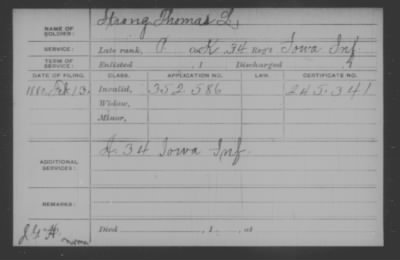 NAME OF SOLDIER: Strong Thomas L,
SERVICE: Late rank, P Co. K, 34 Reg't Iowa Inf
TERM OF SERVICE: Enlisted , 1 Discharged , 1
DATE OF FILING. CLASS. APPLICATION NO. LAW. CERTIFICATE NO.
1880, Feb 13. Invalid, 352.586 245.341
Widow,
Minor,
ADDITIONAL SERVICES: A. 34 Iowa Inf
REMARKS:
Died , 1 , at